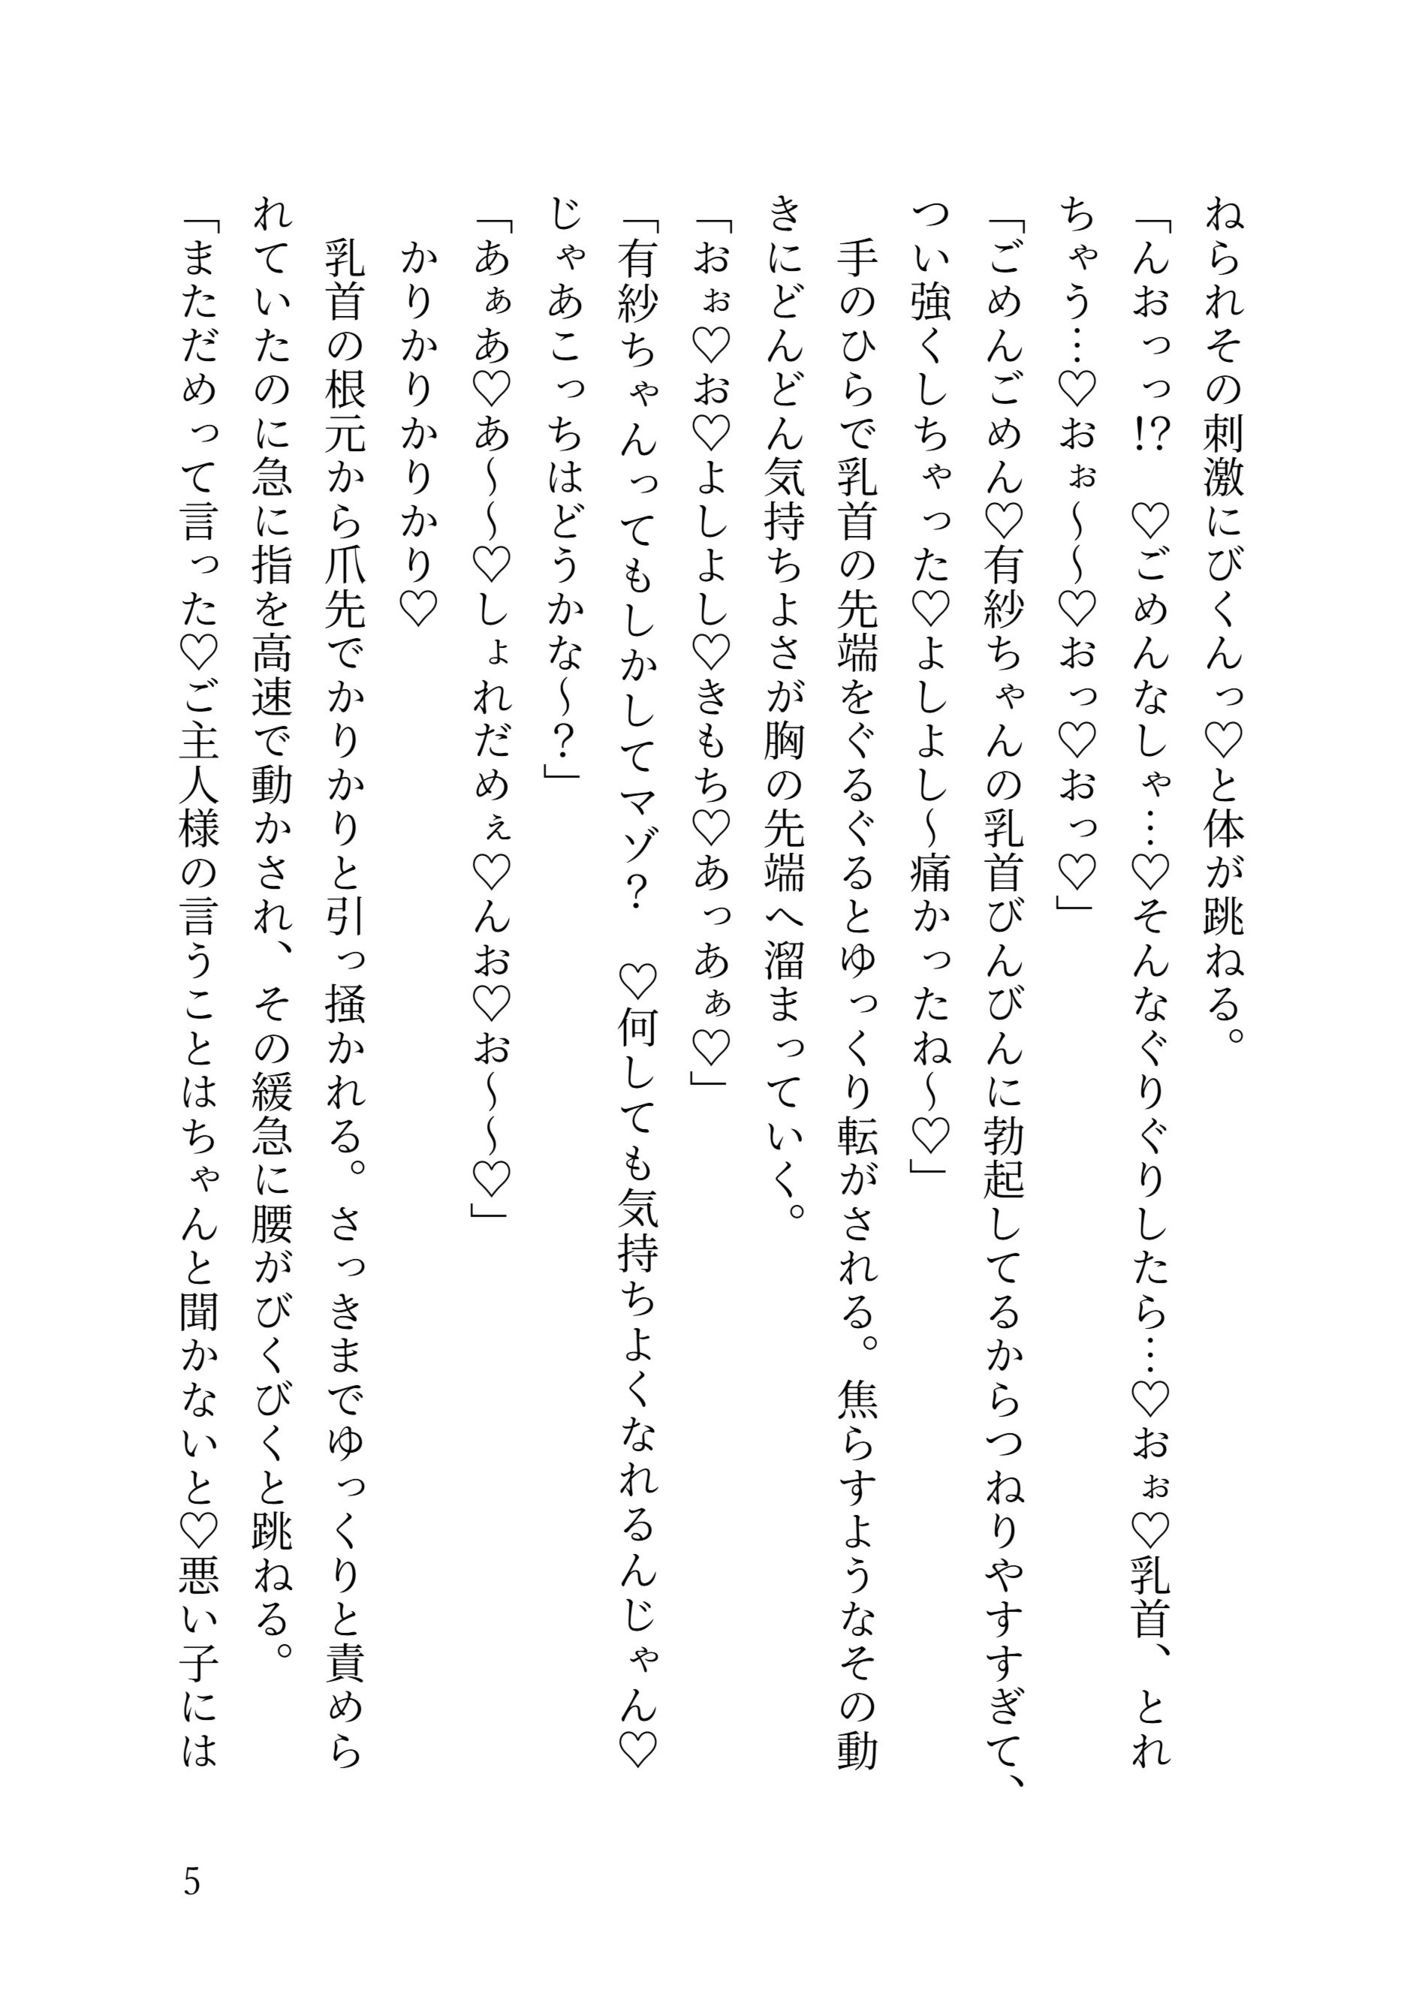 ねられその刺激にびくんっ♡と体が跳ねる。
「んおっっ!?　♡ごめんなしゃ…♡そんなぐりぐりしたら…♡おぉ♡乳首、とれ
ちゃう…♡おぉ～～♡おっ♡おっ♡」
「ごめんごめん♡有紗ちゃんの乳首びんびんに勃起してるからつねりやすすぎて、
つい強くしちゃった♡よしよし～痛かったね～♡」
　手のひらで乳首の先端をぐるぐるとゆっくり転がされる。焦らすようなその動
きにどんどん気持ちよさが胸の先端へ溜まっていく。
「おぉ♡お♡よしよし♡きもち♡あっあぁ♡」
「有紗ちゃんってもしかしてマゾ？　♡何しても気持ちよくなれるんじゃん♡
じゃあこっちはどうかな～？」
「あぁあ♡あ～～♡しょれだめぇ♡んお♡お～～♡」
　かりかりかりかり♡
　乳首の根元から爪先でかりかりと引っ掻かれる。さっきまでゆっくりと責めら
れていたのに急に指を高速で動かされ、その緩急に腰がびくびくと跳ねる。
「まただめって言った♡ご主人様の言うことはちゃんと聞かないと♡悪い子には
5